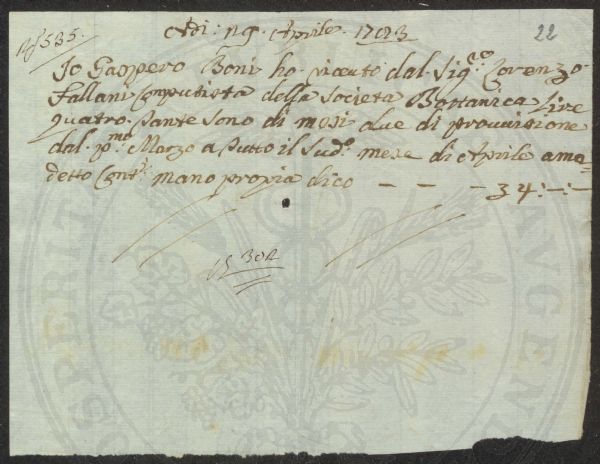 22
Adi: 29. Aprile. 1723
N: 535.
Io Gaspero Boni ho. riceuto dal. Sig:re Lorenzo
Fallani Computista della Societa Bottanica Lire
quatro. Tante sono di mesi due di provvisione
dal. p:mo Marzo a tutto il Sud:o mese di Aprile a me
detto Cont:i mano propia dico - - - 34:-:-
302
PROSPERITA
AUGENDAE